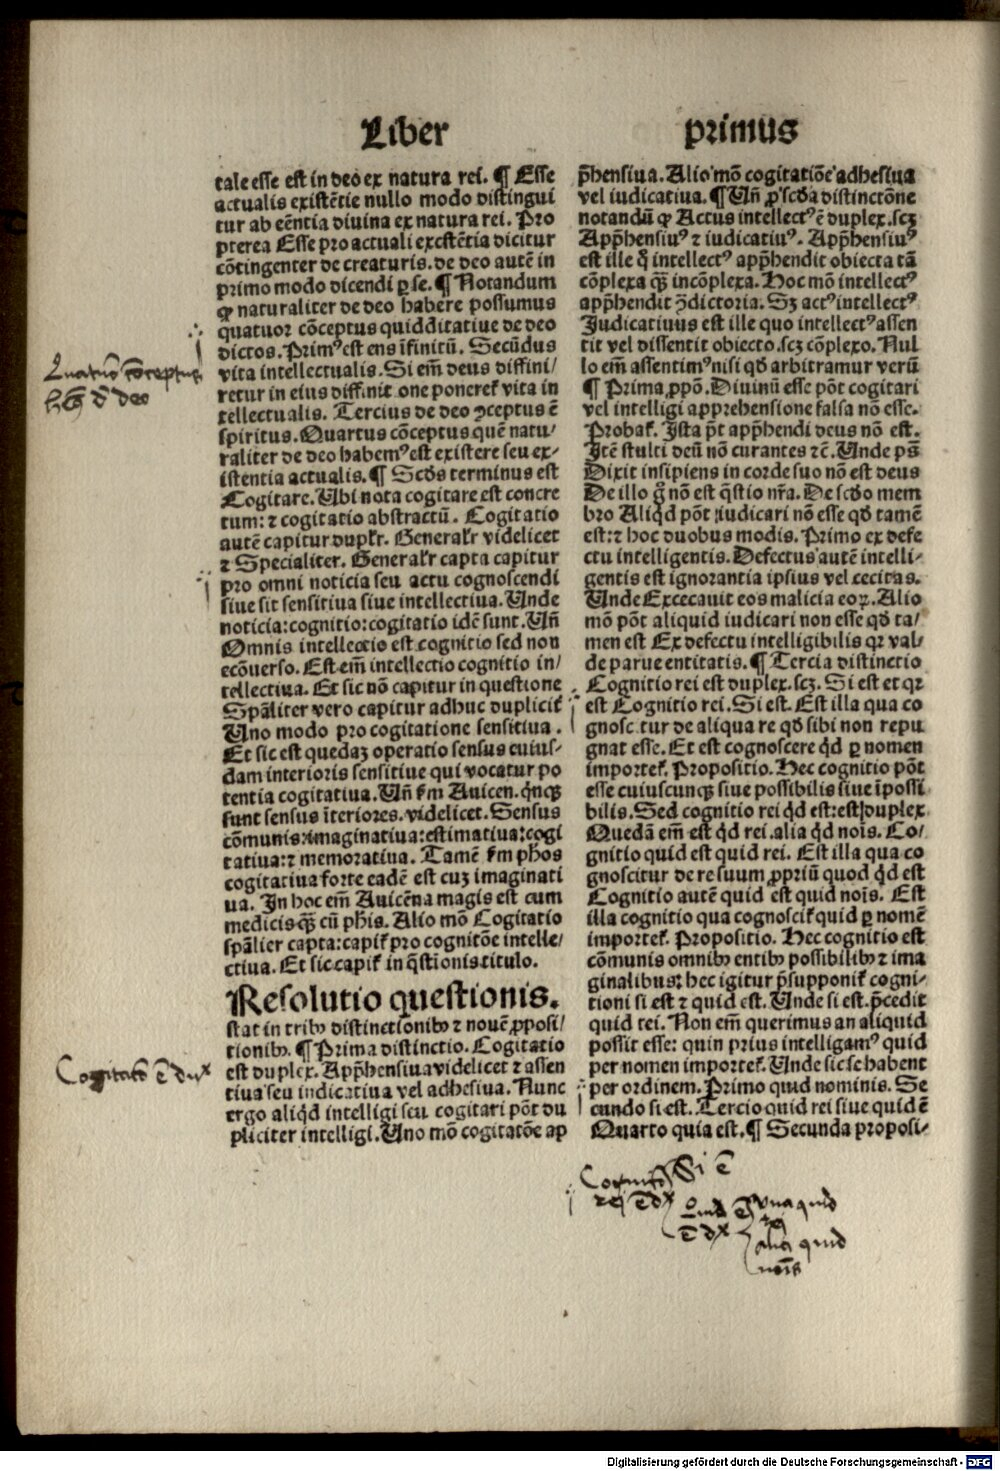 Liber primus
tale esse est in deo ex natura rei. ¶ Esse
actualis existētie nullo modo distingui
tur ab eēntia diuina ex natura rei. Pro
pterea Esse pro actuali excstētia dicitur
cōtingenter de creaturis. de deo autē in
primo modo dicendi ꝑ se. ¶ Notandum
ꝙ naturaliter de deo habere possumus
quatuor cōceptus quidditatiue de deo
dictos. Primꝰ est ens īfinitū. Secūdus
vita intellectualis. Si em̄ deus diffini/
retur in eius diffinit one poneret̄ vita in
tellectualis. Tercius de deo ꝯceptus ē
spiritus. Quartus cōceptus quē natu/
raliter de deo habemꝰ est existere seu ex-
istentia actualis. ¶ Scd̄s terminus est
Cogitare. Ubi nota cogitare est concre
tum: ⁊ cogitatio abstractū. Cogitatio
autē capitur duplr̄. Generalr̄ videlicet
⁊ Specialiter. Generalr̄ capta capitur
pro omni noticia seu actu cognoscendi
siue sit sensitiua siue intellectiua. Unde
noticia: cognitio: cogitatio idē sunt. Un̄
Omnis intellectio est cognitio sed non
ecōuerso. Est em̄ intellectio cognitio in/
tellectiua. Et sic nō capitur in questione
Spāliter vero capitur adhuc duplicit̄
Uno modo pro cogitatione sensitiua.
Et sic est quedaꝫ operatio sensus cuius-
dam interioris sensitiue qui vocatur po
tentia cogitatiua. Un̄ ẜm Auicen. qͥnqꝫ
sunt sensus īteriores. videlicet. Sensus
cōmunis: imaginatiua: estimatiua: cogi
tatiua: ⁊ memoratiua. Tamē ẜm ph̄os
cogitatiua forte eadē est cuꝫ imaginati
ua. In hoc em̄ Auicēna magis est cum
medicis qꝫ̄ cū ph̄is. Alio mō Cogitatio
spālier capta: capit̄ pro cognitōe intelle/
ctiua. Et sic capit̄ in q̄stionis titulo.
Resolutio questionis.
stat in tribꝫ distinctionibꝫ ⁊ nouē ꝓposi/
tionibꝫ. ¶ Prima distinctio. Cogitatio
est duplex. App̄hensiua videlicet ⁊ assen
tiua seu iudicatiua vel adhesiua. Nunc
ergo aliqͥd intelligi seu cogitari pōt du
pliciter intelligi. Uno mō cogitatōe ap
p̄hensiua. Alio mō cogitatiōe adhesiua
vel iudicatiua. ¶ Un̄ ꝓ scd̄a distinctōne
notandū ꝙ Actus intellectꝰ ē duplex. scꝫ
App̄hensiuꝰ ⁊ iudicatiuꝰ. App̄hensiuꝰ
est ille q̄ intellectꝰ app̄hendit obiecta tā
cōplexa qꝫ̄ incōplexa. Hoc mō intellectꝰ
app̄hendit ꝯ̄dictoria. Sꝫ actꝰ intellectꝰ
Judicatiuus est ille quo intellectꝰ assen
tit vel dissentit obiecto. scꝫ cōplexo. Nul
lo em̄ assentimꝰ nisi qd̄ arbitramur verū
¶ Prima ꝓpō. Diuinū esse pōt cogitari
vel intelligi apprehensione falsa nō esse.
Probat̄. Ista pōt app̄hendi deus nō est.
Itē stulti deū nō curantes ⁊c̄. Unde ps̄
Dixit insipiens in corde suo nō est deus
De illo g̊ nō est q̄stio nr̄a. De scd̄o mem
bro Aliqͥd pōt iudicari nō esse qd̄ tamē
est: ⁊ hoc duobus modis. Primo ex defe
ctu intelligentis. Defectus autē intelli-
gentis est ignorantia ipsius vel cecitas.
Unde Excecauit eos malicia eoꝝ. Alio
mō pōt aliquid iudicari non esse qd̄ ta/
men est Ex defectu intelligibilis qꝛ val/
de parue entitatis. ¶ Tercia distinctio
Cognitio rei est duplex. scꝫ. Si est et qꝛ
est Cognitio rei. Si est. Est illa qua co
gnosc tur de aliqua re qd̄ sibi non repu
gnat esse. Et est cognoscere qͥd ꝑ nomen
importet̄. Propositio. Hec cognitio pōt
esse cuiuscunqꝫ siue possibilis siue īpossi
bilis. Sed cognitio rei qͥd est: est duplex
Quedā em̄ est qͥd rei. alia qͥd nois̄. Co/
gnitio quid est quid rei. Est illa qua co
gnoscitur de re suum ꝓpriū quod qͥd est
Cognitio autē quid est quid nois̄. Est
illa cognitio qua cognoscit̄ quid ꝑ nomē
importet̄. Propositio. Hec cognitio est
cōmunis omnibꝫ entibꝫ possibilibꝫ ⁊ ima
ginalibus: hec igitur p̄supponit̄ cogni-
tioni si est ⁊ quid est. Unde si est. p̄cedit
quid rei. Non em̄ querimus an aliquid
possit esse: quin prius intelligamꝰ quid
per nomen importet̄. Unde sic se habent
per ordinem. Primo quid nominis. Se
cundo si est. Tercio quid rei siue quid ē
Quarto quia est. ¶ Secunda proposi-
Quatuor cōceptus
hēmꝰ de deo
Cogitatō ē dux
Cognitō Si ē
rei ē dx
Quid ē Una quid
ē dx rei
alia quid
nois̄
Digitalisierung gefördert durch die Deutsche Forschungsgemeinschaft - DFG